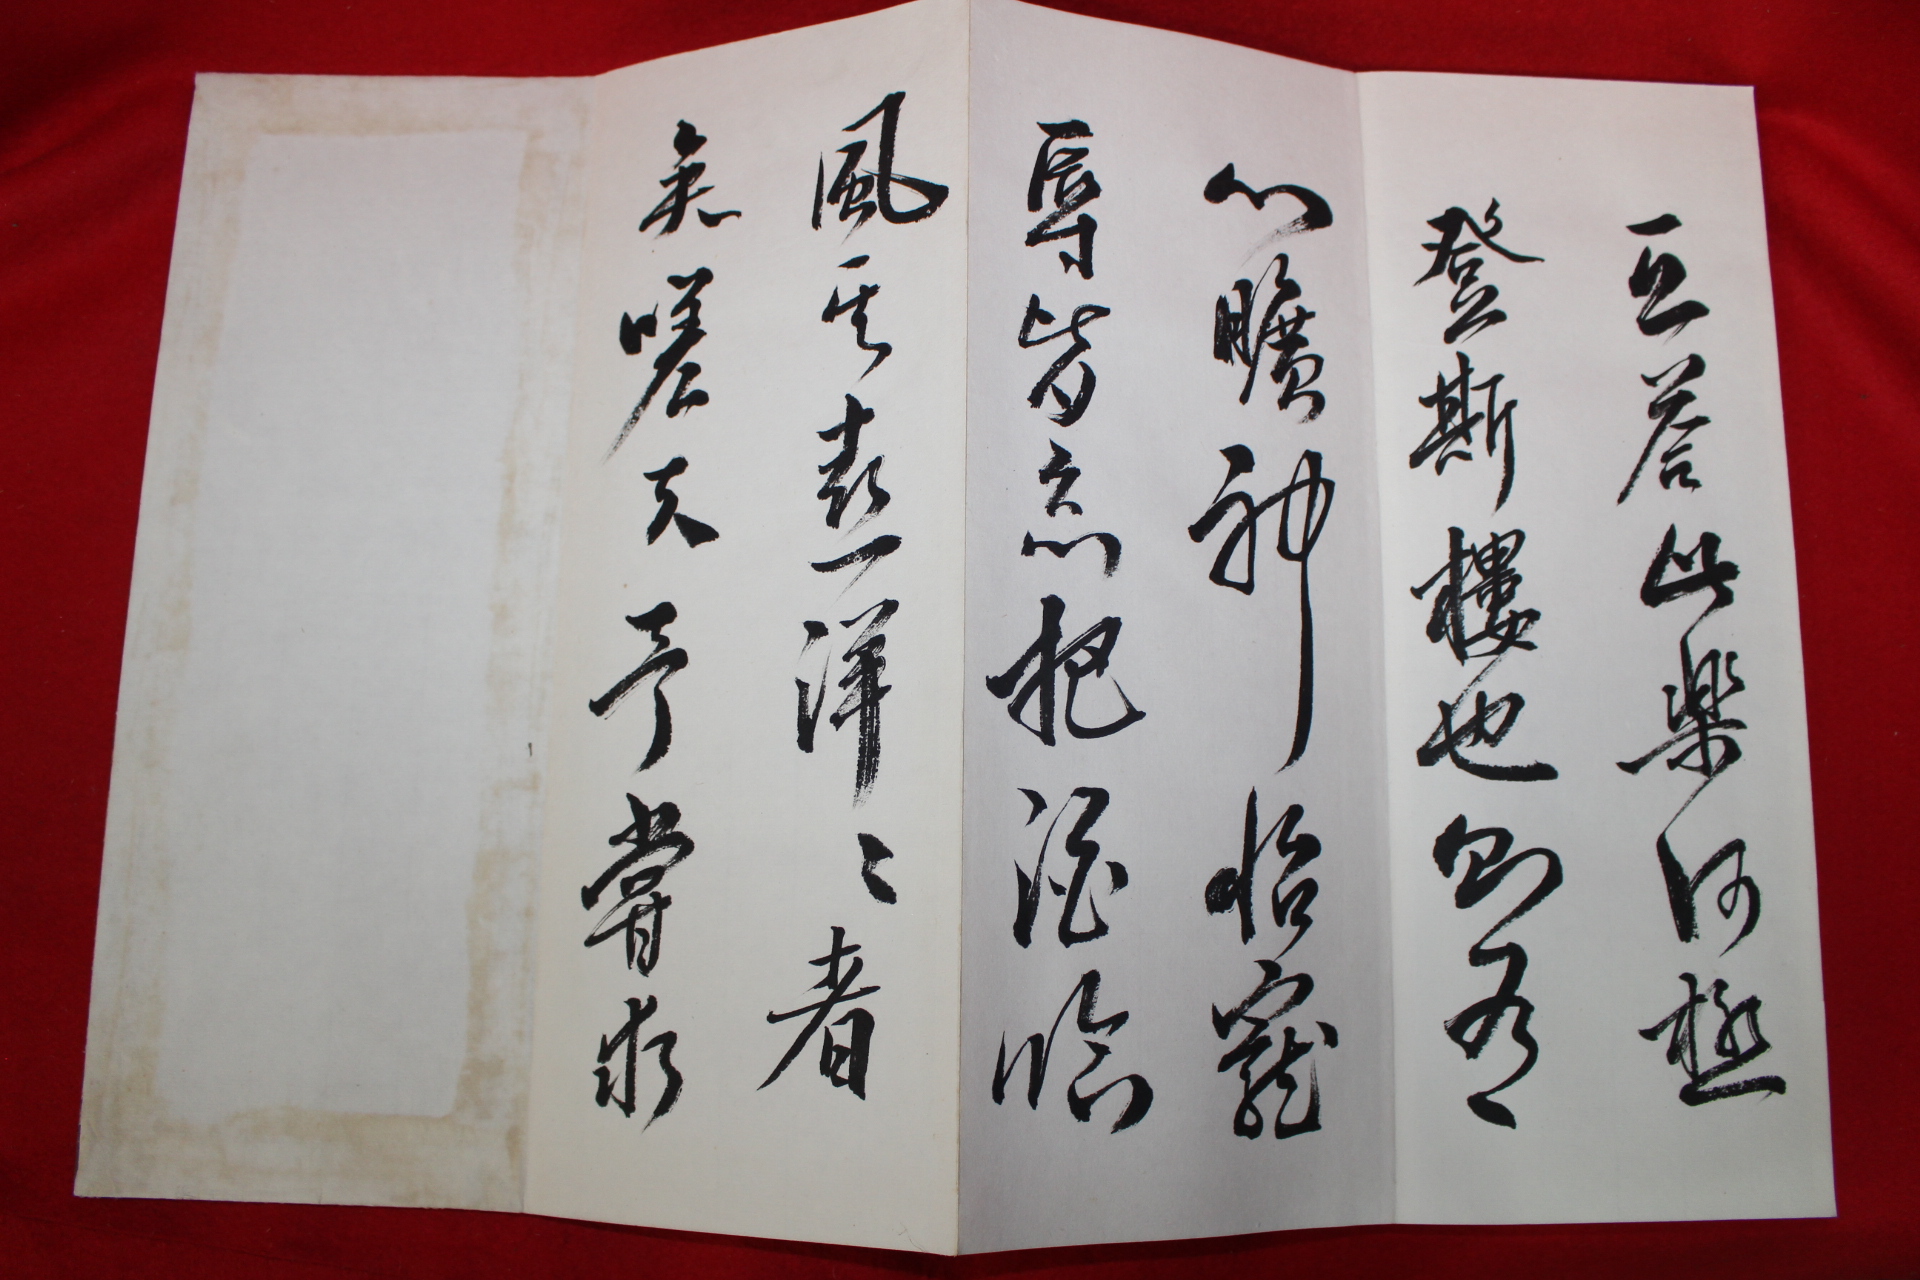 互答此樂何極
登斯樓也則有
心曠神怡寵
辱皆忘把酒臨
風其喜洋〻者
矣嗟夫予嘗求